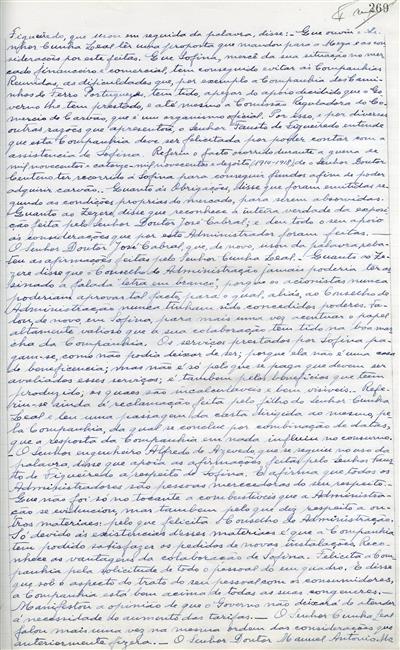 269
Figueirêdo, que usou em seguida da palavra, disse: - Que ouviu o Se-
nhor Cunha Leal ler uma proposta que mandou para a Mesa e as con-
siderações por este feitas. Que Sofina, mercê da sua situação no mer-
cado financeiro e comercial, tem conseguido evitar á Companhias
Reunidas, as dificuldades que, por exemplo a Companhia dos Cami-
nhos de Ferro Portugueses, tem tido, apesar do apoio decidido que o Go-
verno lhe tem prestado, e até mesmo a Comissão Reguladora do Co-
mercio de Carvão, que é um organismo oficial. Por isso, e por diversas
outras razões que apresentou, o Senhor Fausto de Figueirêdo entende
que esta Companhia deve ser felicitada por poder contar com a
assistencia de Sofina. Refere o facto ocorrido durante a guerra de
mil novecentos e catorze-mil novecentos e dezoito, (1914-1918) do Senhor Doutor
Centeno ter recorrido á Sofina para conseguir fundos afim de poder
adquirir carvão. - Quanto ás Obrigações, disse que foram emitidas se-
gundo as condições proprias do mercado, para serem absorvidas.
Quanto ao Zezere disse que reconhece a inteira verdade da expo-
sição feita pelo Senhor Doutor José Cabral; e deu todo o seu apoio
ás considerações que por este Administrador foram feitas. -
- O Senhor Doutor José Cabral, que, de novo, usou da palavra, reba-
teu as afirmações feitas pelo Senhor Cunha Leal. - Quanto ao Ze-
zere disse que o Conselho de Administração jamais poderia ter as-
sinado a falada "letra em branco", porque os accionistas nunca
poderiam aprovar tal facto, para o qual, aliás, ao Conselho de
Administração nunca tinham sido concedidos poderes. Fa-
lou de novo em Sofina, para mais uma vez acentuar o papel
altamente valioso que a sua colaboração tem tido na boa mar-
cha da Companhia. Os serviços prestados por Sofina pa-
gam-se, como não podia deixar de ser; porque ela não é uma casa
de beneficencia; mas não é só pelo que se paga que devem ser
avaliados esses serviços; é tambem pelos beneficios que tem
produzido, os quaes são incalculaveis e bem visiveis. Refe-
riu-se ainda á reclamação feita pelo filho do Senhor Cunha
Leal e leu uma passagem da carta dirigida ao mesmo, pe-
la Companhia, da qual se conclue por combinação de datas,
que a resposta da Companhia em nada influiu no consumo.
- O Senhor engenheiro Alfredo de Azevedo, que se seguiu no uso da
palavra, disse que apoia as afirmações feitas pelo Senhor Faus-
to de Figueirêdo a respeito de Sofina. E afirma que todos os
Administradores são pessoas merecedoras do seu respeito. -
Que não foi só no tocante a combustiveis que a Administra-
ção se evidenciou, mas tambem pelo que diz respeito a ou-
tros materiaes: pelo que felicita o Conselho de Administração.
Só devido ás existencias desses materiaes é que a Companhia
tem podido satisfazer os pedidos de novas instalações. Reco-
nhece as vantagens da colaboração de Sofina. Felicita a Com-
panhia pela solicitude de todo o pessoal do seu quadro. E disse
que sob o aspecto do trato do seu pessoal com os consumidores,
a Companhia está bem acima de todas as suas congeneres. -
- Manifestou a opinião de que o Governo não deixará de atender
á necessidade do aumento das tarifas. - O Senhor Cunha Leal
falou mais uma vez na mesma ordem das considerações que
anteriormente fizera. - O Senhor Doutor Manuel Antonio Ma-